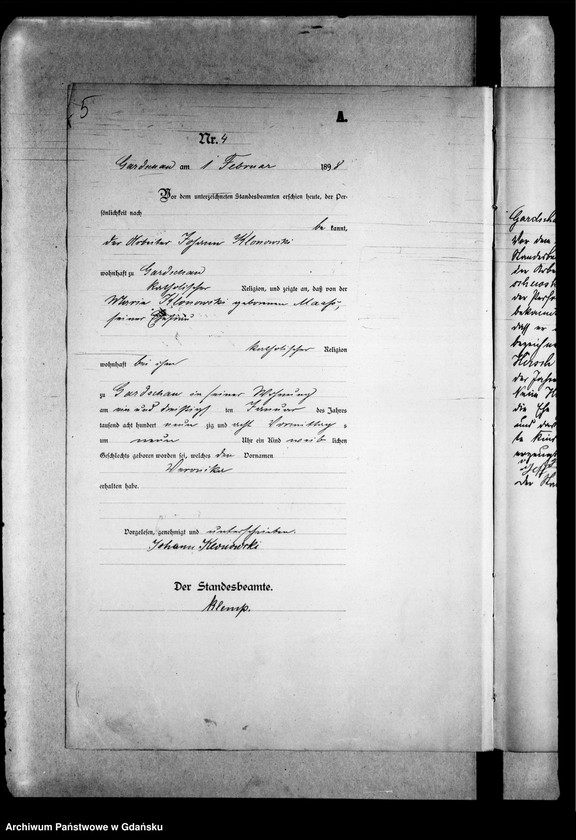 5
A.
Nr. 4
Gardschau am 1 Februar 1898
Vor dem unterzeichneten Standesbeamten erschien heute, der Per-
sönlichkeit nach
be kannt,
der Arbeiter Johann Klonowski
wohnhaft zu Gardschau
katholischer Religion, und zeigte an, daß von der
Maria Klonowski geborenen
seiner Ehefrau
katholischer Religion
wohnhaft bei ihm
zu Gardschau in seiner Wohnung
am ein und dreißigs ten Januar des Jahres
tausend acht hundert neun zig und acht Vormittag s
um neun Uhr ein Kind weib lichen
Geschlechts geboren worden sei, welches den Vornamen
Veronika
erhalten habe.
Vorgelesen, genehmigt und unterschrieben.
Johann Klonowski
Der Standesbeamte.
Klemp.
Gardscha
Vor dem
Standesbe
der Arbe
der Perso
bekannt
daß er
bezeichne
Hirsch
der Jahre
die Ehe
und daß
te Kind
erzeugt
Der Sta
Archiwum Państwowe w Gdańsku